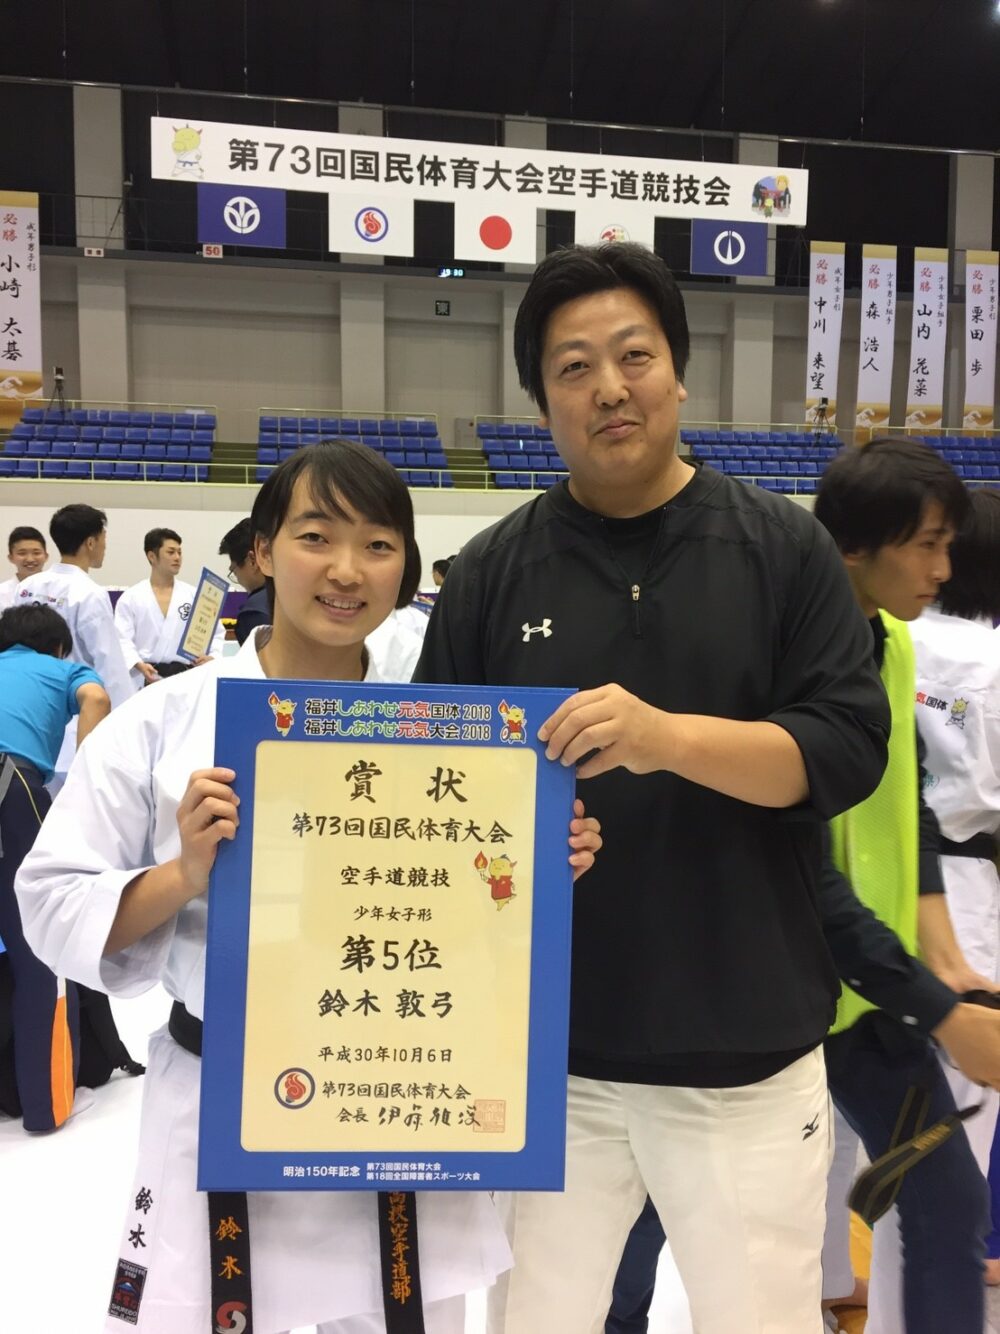 第73回国民体育大会空手道競技会
50
東
成年男子形
必勝 小崎 太碁
成年女子形
必勝 中川 来望
少年男子組手
必勝 森 浩人
少年女子組手
必勝 山内 花菜
少年男子形
必勝 栗田 歩
福井しあわせ元気国体2018
福井しあわせ元気大会2018
賞 状
第73回国民体育大会
空手道競技
少年女子形
第5位
鈴木 敦弓
平成30年10月6日
第73回国民体育大会
会長 伊藤雅俊
明治150年記念
第73回国民体育大会
第18回全国障害者スポーツ大会
鈴木
鈴木
高校空手道部
SHUREIDO
元気国体